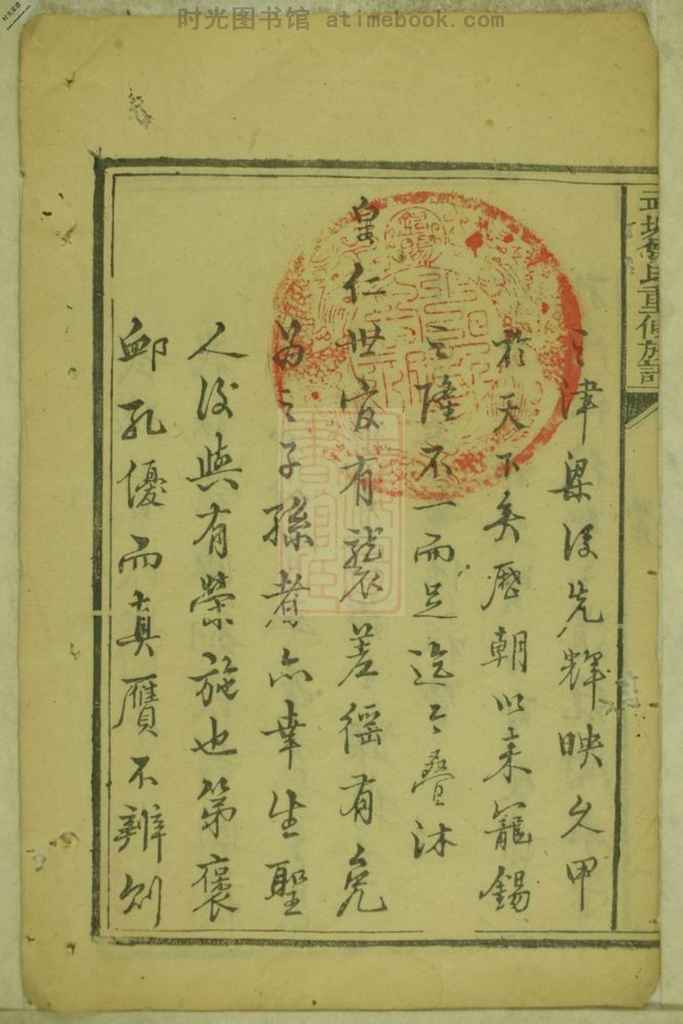 时光图书馆 atimebook.com
之津梁後先輝映久甲
於天下矣歷朝以来寵錫
之隆不一而足迄今疊沐
皇仁世官有襲差徭有免
為之子孫者亦幸生聖
人後與有榮施也第褒
卹孔優而真贗不辨則
氏重修族